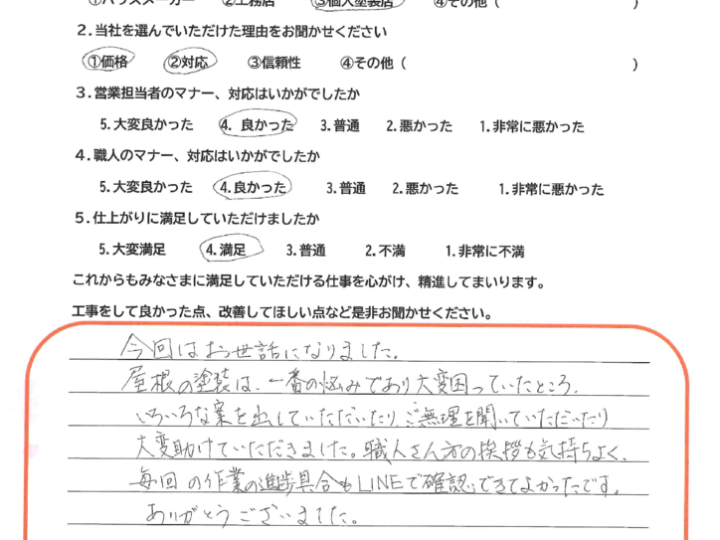 ①ハウスメーカー ②工務店 ③個人塗装店 ④その他（ ）
２.当社を選んでいただけた理由をお聞かせください
①価格 ②対応 ③信頼性 ④その他（ ）
３.営業担当者のマナー、対応はいかがでしたか
5.大変良かった 4. 良かった 3.普通 2.悪かった 1.非常に悪かった
４.職人のマナー、対応はいかがでしたか
5.大変良かった 4.良かった 3.普通 2.悪かった 1.非常に悪かった
５.仕上がりに満足していただけましたか
5.大変満足 4.満足 3.普通 2.不満 1.非常に不満
これからもみなさまに満足していただける仕事を心がけ、精進してまいります。
工事をして良かった点、改善してほしい点など是非お聞かせください。
今回はお世話になりました。
屋根の塗装は、一番の悩みであり大変困っていたところ、
いろいろな案を出していただいたり、ご無理を聞いていただいたり
大変助けていただきました。職人さん方の挨拶も気持ちよく、
毎回の作業の進歩具合もLINEで確認できてよかったです。
ありがとうございました。